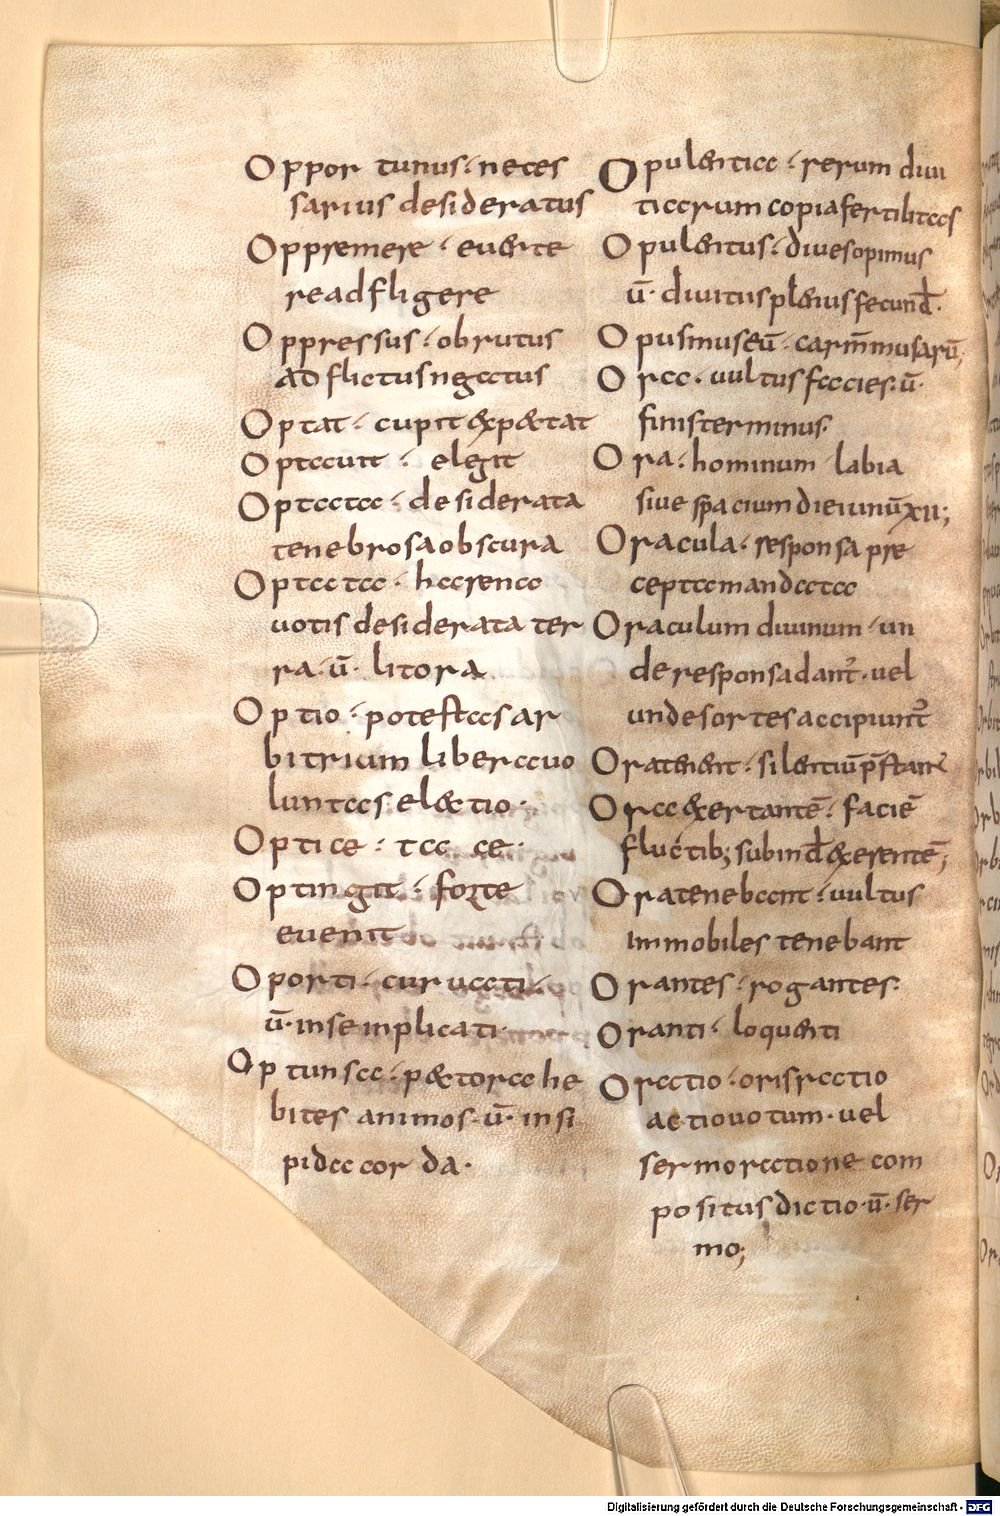 Oppor tunus · neces
sarius desideratus
Oppremere · euerte
readfligere
Oppressus · obrutus
adflictus negatus
Optat · cupit &xp&tat
Optauit · elegit
Optata · desiderata
tenebrosa obscura
Optata · harena
uotis desiderata ter
ra · ū · litora
Optio · potestas ar
bitrium libera uo
luntas el&ctio ·
Optice · ta ce ·
Optingit · forte
euenit
Oporti · curuati ·
ū · inse inplicati ·
Optunsa · p&tora he
bites animos · ū · insi
pida cor da ·
Opulentia · rerum diui
tiarum copia fertilitas
Opulentus · diues opimus
ū · diuitus plenius fecund̄ ·
Opus museū · carm̄ musarū;
Ora · uultus facies · ū ·
finis terminus ·
Ora · hominum labia
siue spacium dieiunū xii;
Oracula · responsa pre
cepta mandata
Oraculum diuinum · un
de responsa dant᷒ · uel
unde sortes accipiunt᷒
Oratenent · silentiū p̄stant
Ora &xertantē · faciē
fluctib; subind̄ &xerentē;
Oratenebant · uultus
immobiles tenebant
Orantes · rogantes ·
Oranti · loquenti
Oratio · oris ratio
actio uotum · uel
sermo ratione com
positus dictio · ū · ser
mo;
Digitalisierung gefördert durch die Deutsche Forschungsgemeinschaft - DFG